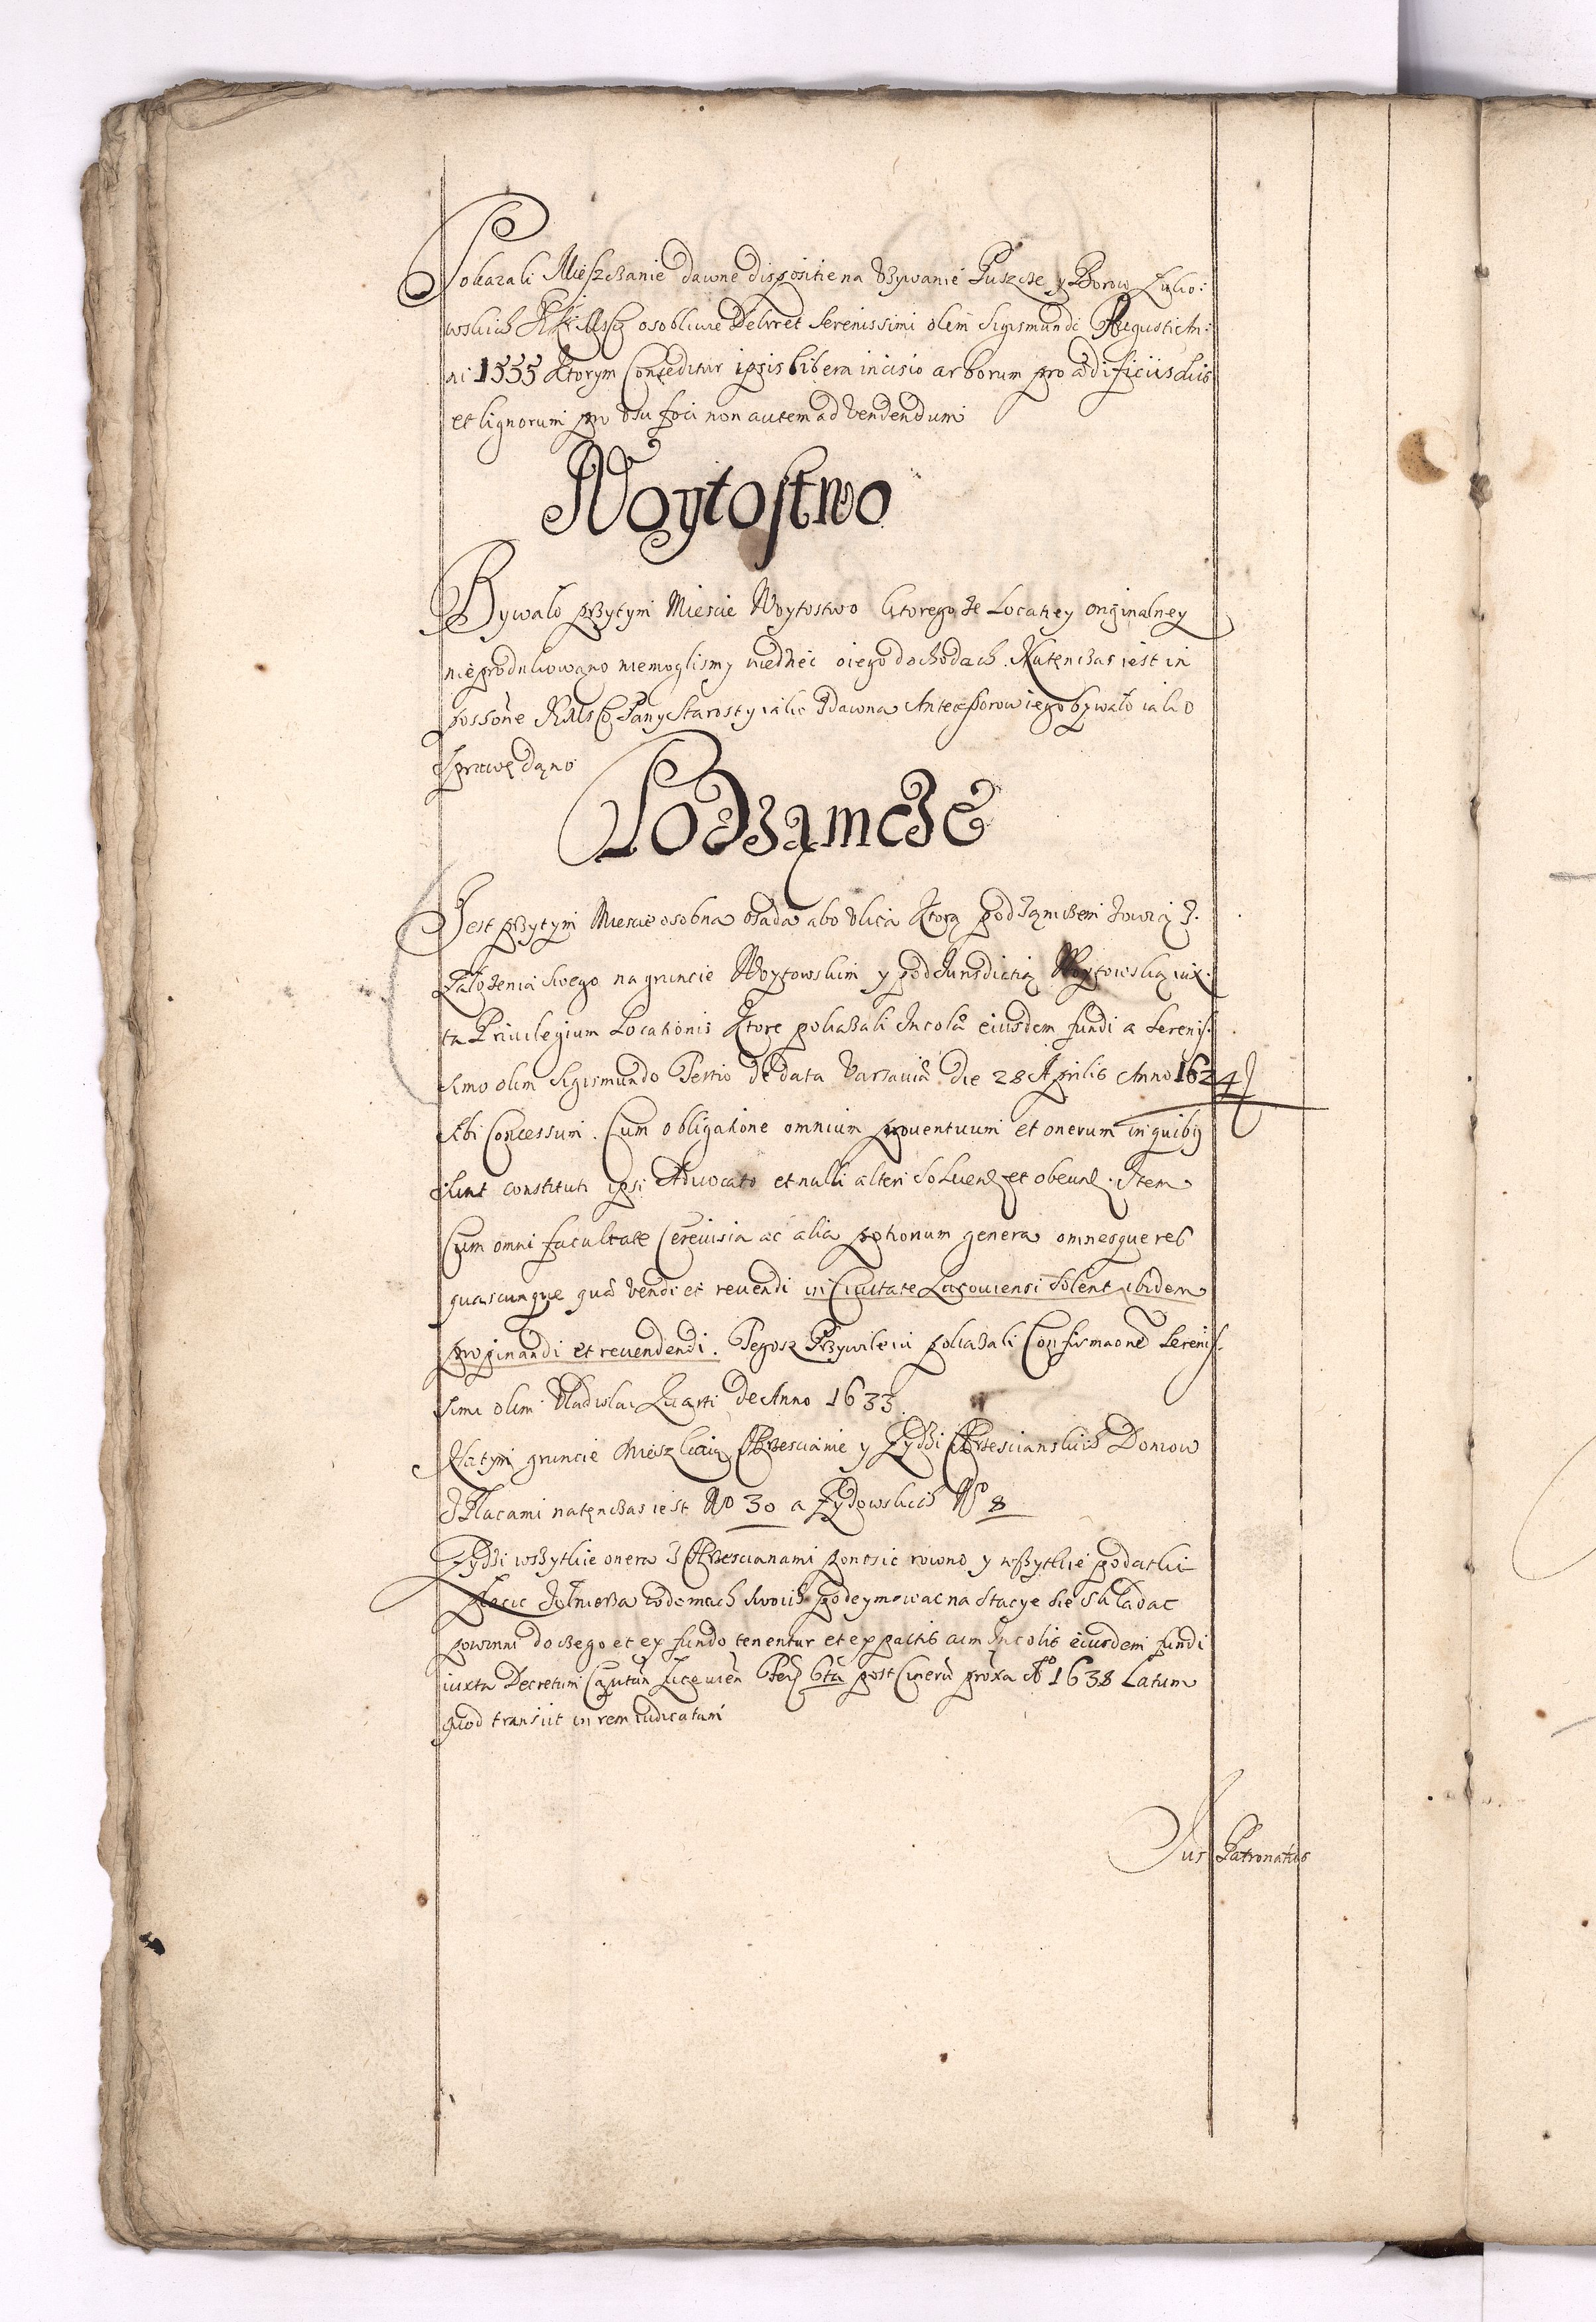 Pokazali Mieszczanie dawne dispositie na Vzywanie Puszcze y Borow Luko:
wskich osobliwie Dekret Serenissimi olim Sigismundi Augusti An:
ni 1555 Ktorym Conceditur ipsis libera incisio arborum pro ædificiis suis
et lignorum pro vsu foci non autem ad vendendum
Woytostwo
Bywało przytym Miescie Woytostwo ktorego ze Locatiey originalney
nieprodukowano niemoglismy wiedziec oiego dochodach. Natenczas iest in
possone Pany Starosty iako zdawna Antecessorow iego bywało iako
sprawę dąno
Podząmcze
Jest przytym Miescie osobna osada abo vlica Ktorą podząmczem zowią z.
Załozenia swego na gruncie Woytowskim y pod Jurisdictią Woytowską iux:
ta Priuilegium Locationis Ktore pokazali Incolæ eiusdem fundi a Serenis:
simo olim Sigismundo Tertio de data Varsauiæ die 28 Aprilis Anno 1624
sibi Concessum. Cum obligatione omnium prouentuum et onerum in quibus
sunt constituti ipsi Aduocato et nulli alteri soluend et obeund. Item
Cum omni facultate Cereuisia ac alia potionum genera omnesque res
quascunque quæ vendi et reuendi in Ciuitate Lucouiensi solent ibidem
propinandi et reuendendi. Tegosz Przywileiu pokazali Confirmaonẽ Serenis:
simi olim Vladislai Quarti de Anno 1633
Natym gruncie Mieszkaią Chrzescianie y Zydzi Chrzescianskich Domow
z Placami natenczas iest No 30 a Zydowskich No 8
Zydzi wszytkie onera z Chrzescianami ponosic rowno y wszytkie podatki
płacic Zołnierza wdomach swoich podeymowac na Stacye sie składac
powinni do czego et ex fundo tenentur et ex pactis cum Incolis eiusdem fundi
iuxta Decretum Lucouien post Cinerũ proxa Ao 1638 Latum
quod transiit in rem iudicatam
Jus Patronatus